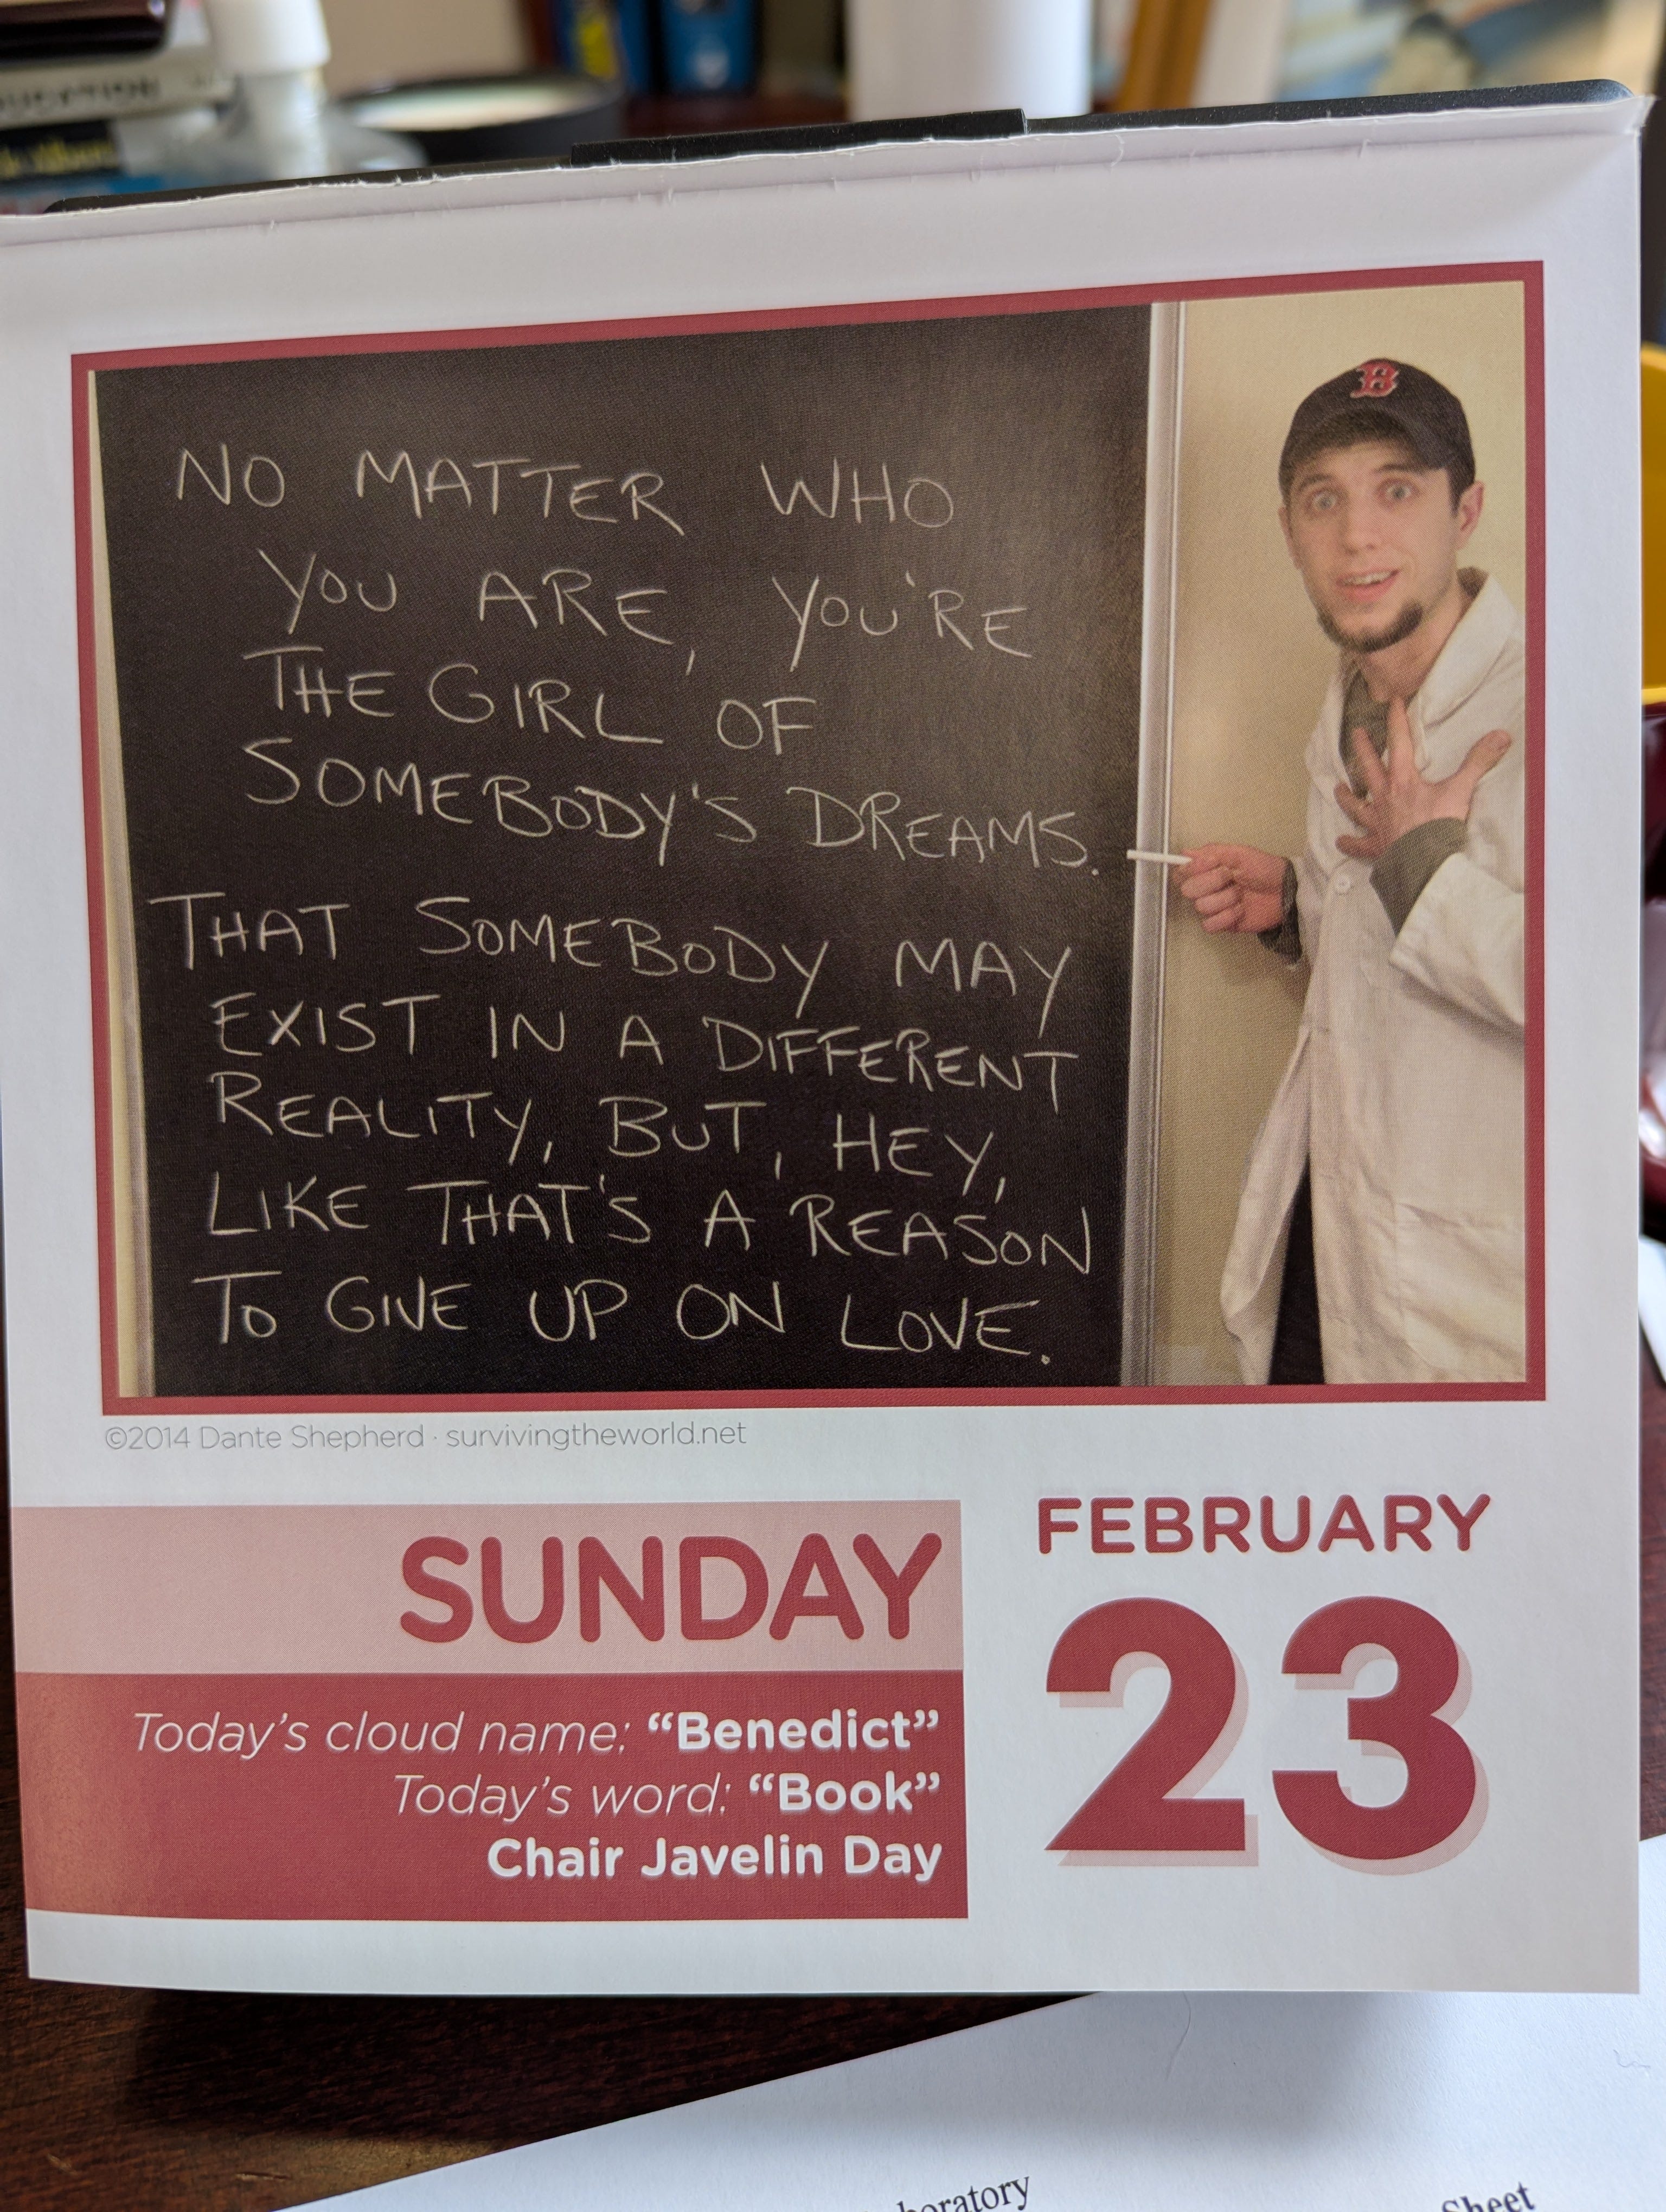 UCATION
B
NO MATTER WHO
YOU ARE, YOU'RE
THE GIRL OF
SOMEBODY'S DREAMS.
THAT SOMEBODY MAY
EXIST IN A DIFFERENT
REALITY, BUT, HEY,
LIKE THAT'S A REASON
TO GIVE UP ON LOVE.
©2014 Dante Shepherd · survivingtheworld.net
SUNDAY
FEBRUARY
23
Today's cloud name: “Benedict”
Today's word: “Book”
Chair Javelin Day
boratory
Sheet